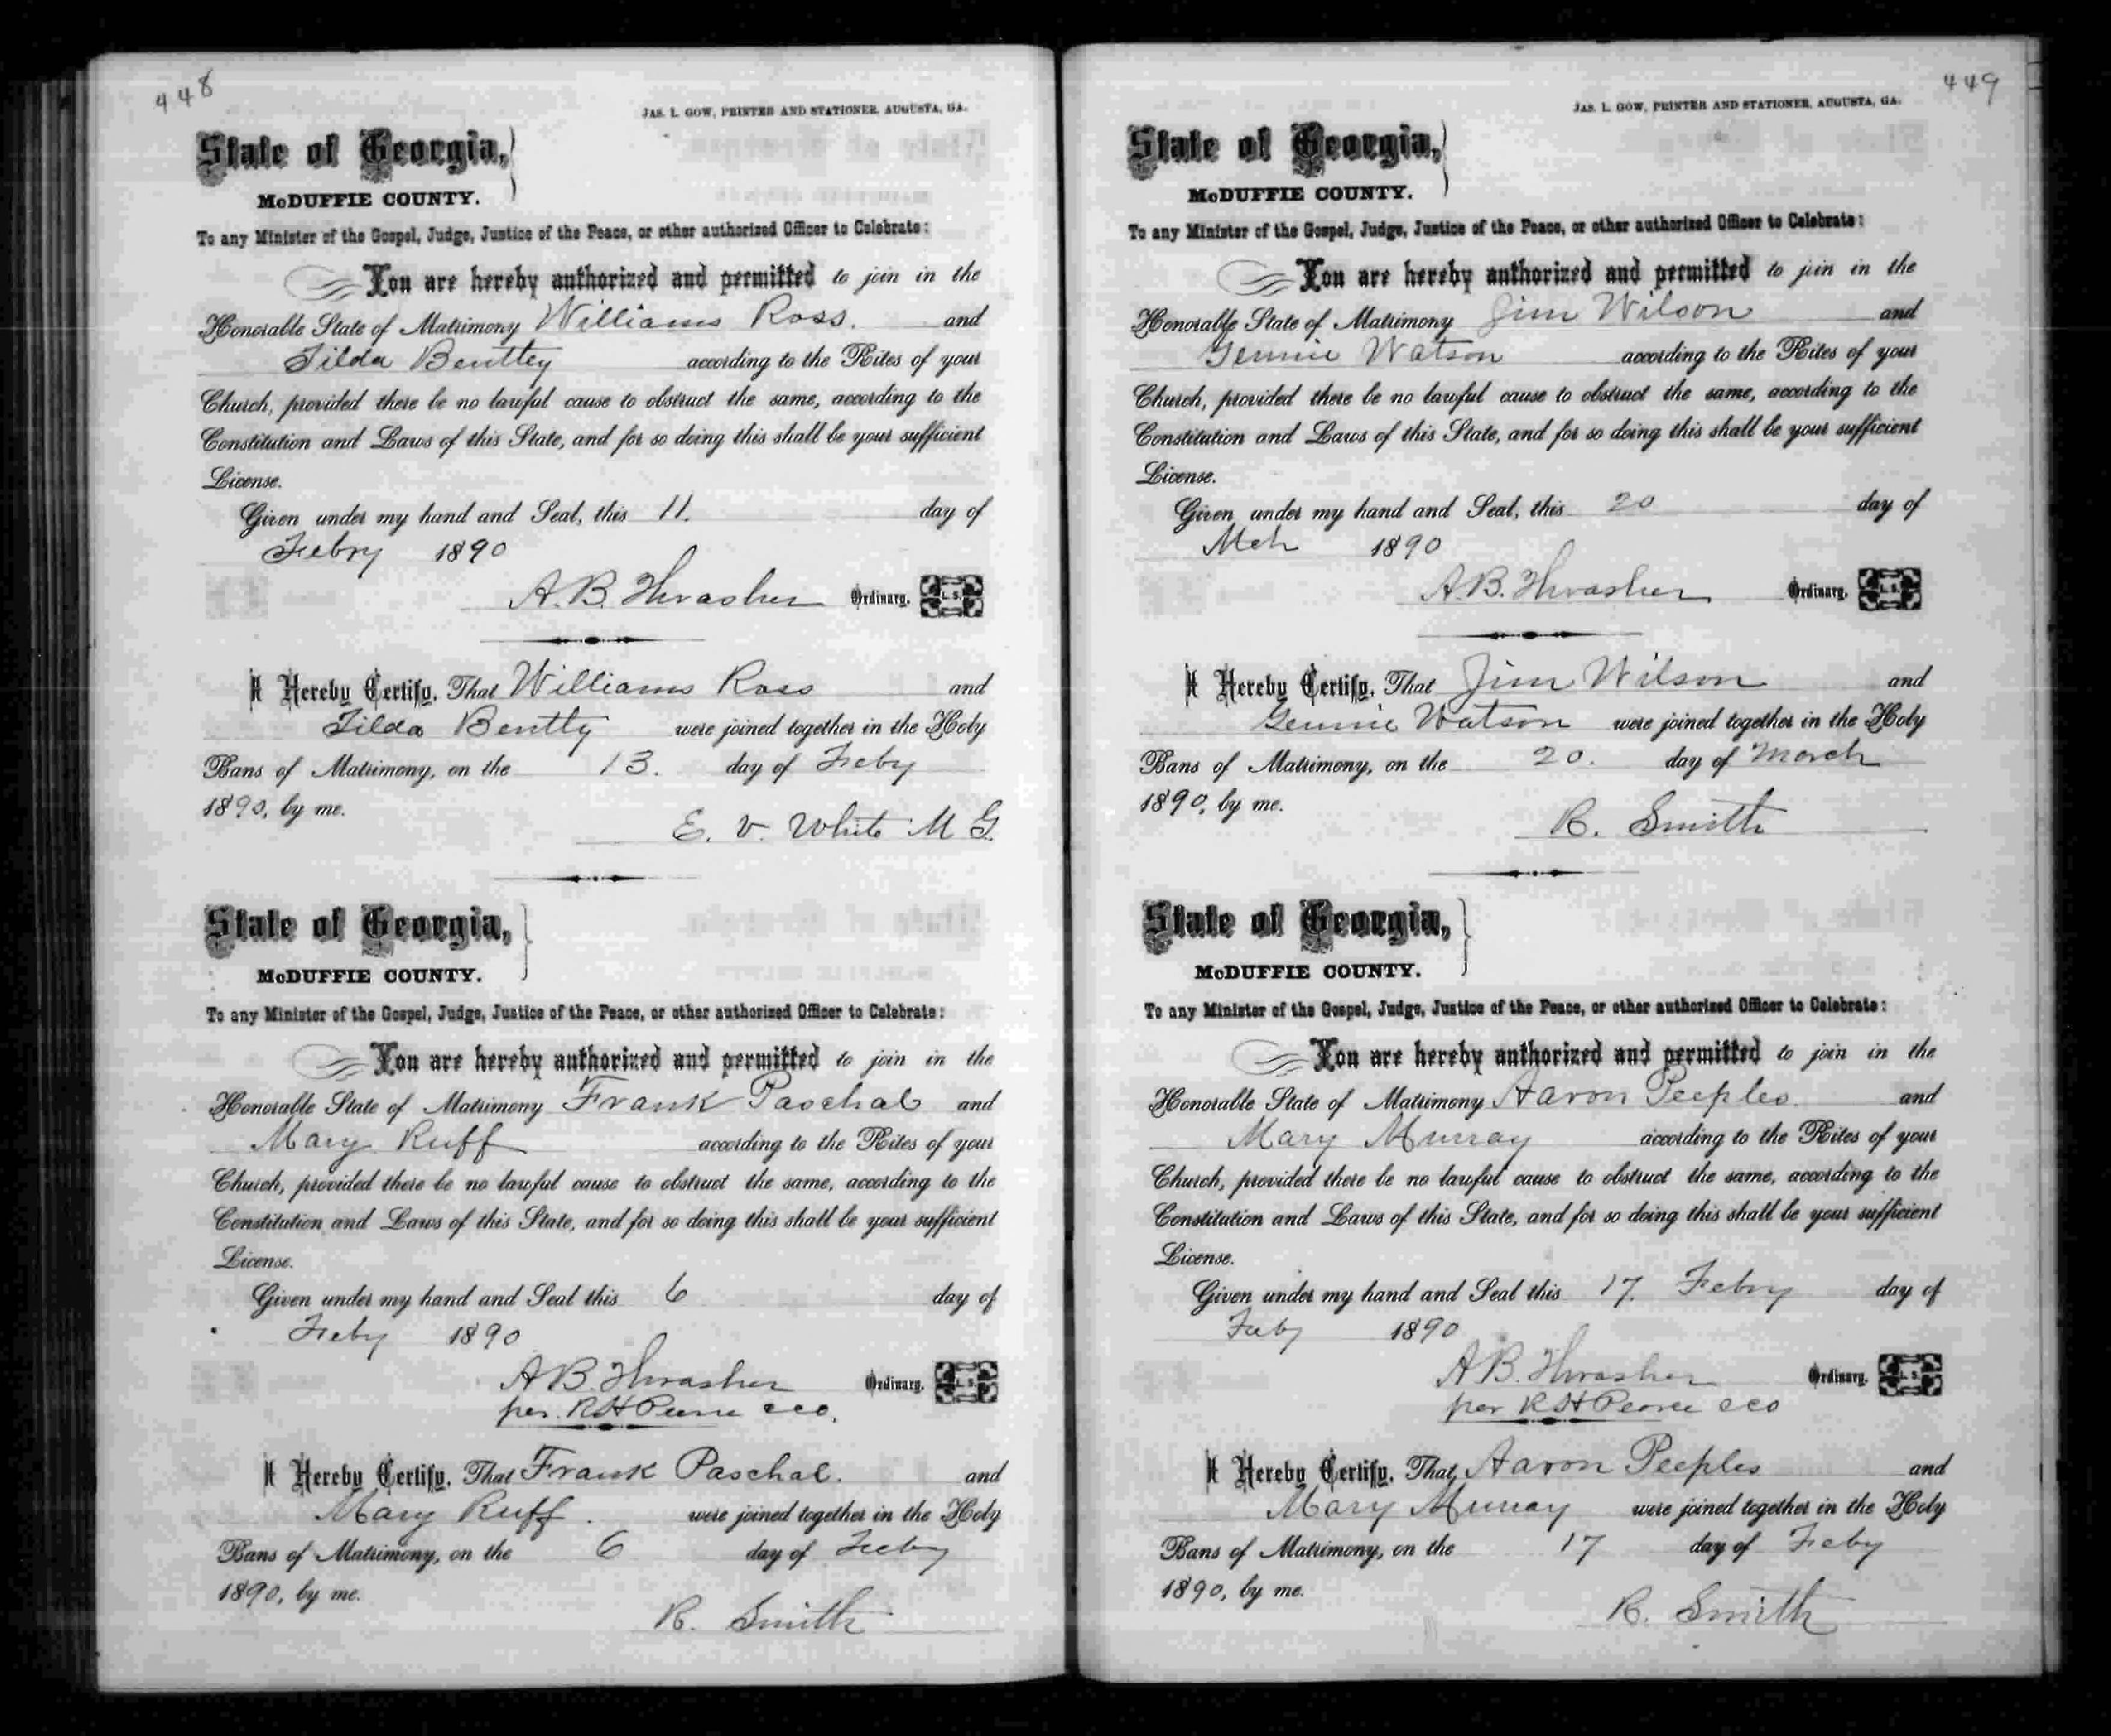 448
JAS. L. GOW, PRINTER AND STATIONER, AUGUSTA, GA.
State of Georgia,
McDUFFIE COUNTY.
To any Minister of the Gospel, Judge, Justice of the Peace, or other authorized Officer to Celebrate:
You are hereby authorized and permitted to join in the
Honorable State of Matrimony Williams Ross. and
Tilda Bentley according to the Rites of your
Church, provided there be no lawful cause to obstruct the same, according to the
Constitution and Laws of this State, and for so doing this shall be your sufficient
License.
Given under my hand and Seal, this 11. day of
Febry 1890
A. B. Thrasher Ordinary. L. S.
I Hereby Certify, That Williams Ross and
Tilda Bently were joined together in the Holy
Bans of Matrimony, on the 13. day of Feby
1890, by me.
E. V. White M G.
State of Georgia,
McDUFFIE COUNTY.
To any Minister of the Gospel, Judge, Justice of the Peace, or other authorized Officer to Celebrate:
You are hereby authorized and permitted to join in the
Honorable State of Matrimony Frank Paschal and
Mary Ruff according to the Rites of your
Church, provided there be no lawful cause to obstruct the same, according to the
Constitution and Laws of this State, and for so doing this shall be your sufficient
License.
Given under my hand and Seal this 6 day of
Feby 1890
A B. Thrasher Ordinary. L. S.
per. R H
I Hereby Certify, That Frank Paschal. and
Mary Ruff. were joined together in the Holy
Bans of Matrimony, on the 6 day of Feby
1890, by me.
R. Smith
449
JAS. L. GOW, PRINTER AND STATIONER, AUGUSTA, GA.
State of Georgia,
McDUFFIE COUNTY.
To any Minister of the Gospel, Judge, Justice of the Peace, or other authorized Officer to Celebrate:
You are hereby authorized and permitted to join in the
Honorable State of Matrimony Jim Wilson and
Gennie Watson according to the Rites of your
Church, provided there be no lawful cause to obstruct the same, according to the
Constitution and Laws of this State, and for so doing this shall be your sufficient
License.
Given under my hand and Seal, this 20 day of
Mch 1890
A. B. Thrasher Ordinary. L. S.
I Hereby Certify, That Jim Wilson and
Gennie Watson were joined together in the Holy
Bans of Matrimony, on the 20. day of March
1890, by me.
R. Smith
State of Georgia,
McDUFFIE COUNTY.
To any Minister of the Gospel, Judge, Justice of the Peace, or other authorized Officer to Celebrate:
You are hereby authorized and permitted to join in the
Honorable State of Matrimony Aaron Peeples and
Mary Murray according to the Rites of your
Church, provided there be no lawful cause to obstruct the same, according to the
Constitution and Laws of this State, and for so doing this shall be your sufficient
License.
Given under my hand and Seal this 17. Febry day of
Feby 1890
A B. Thrasher Ordinary. L. S.
per R H Pearce cco
I Hereby Certify, That Aaron Peeples and
Mary Murray were joined together in the Holy
Bans of Matrimony, on the 17 day of Feby
1890, by me.
R. Smith